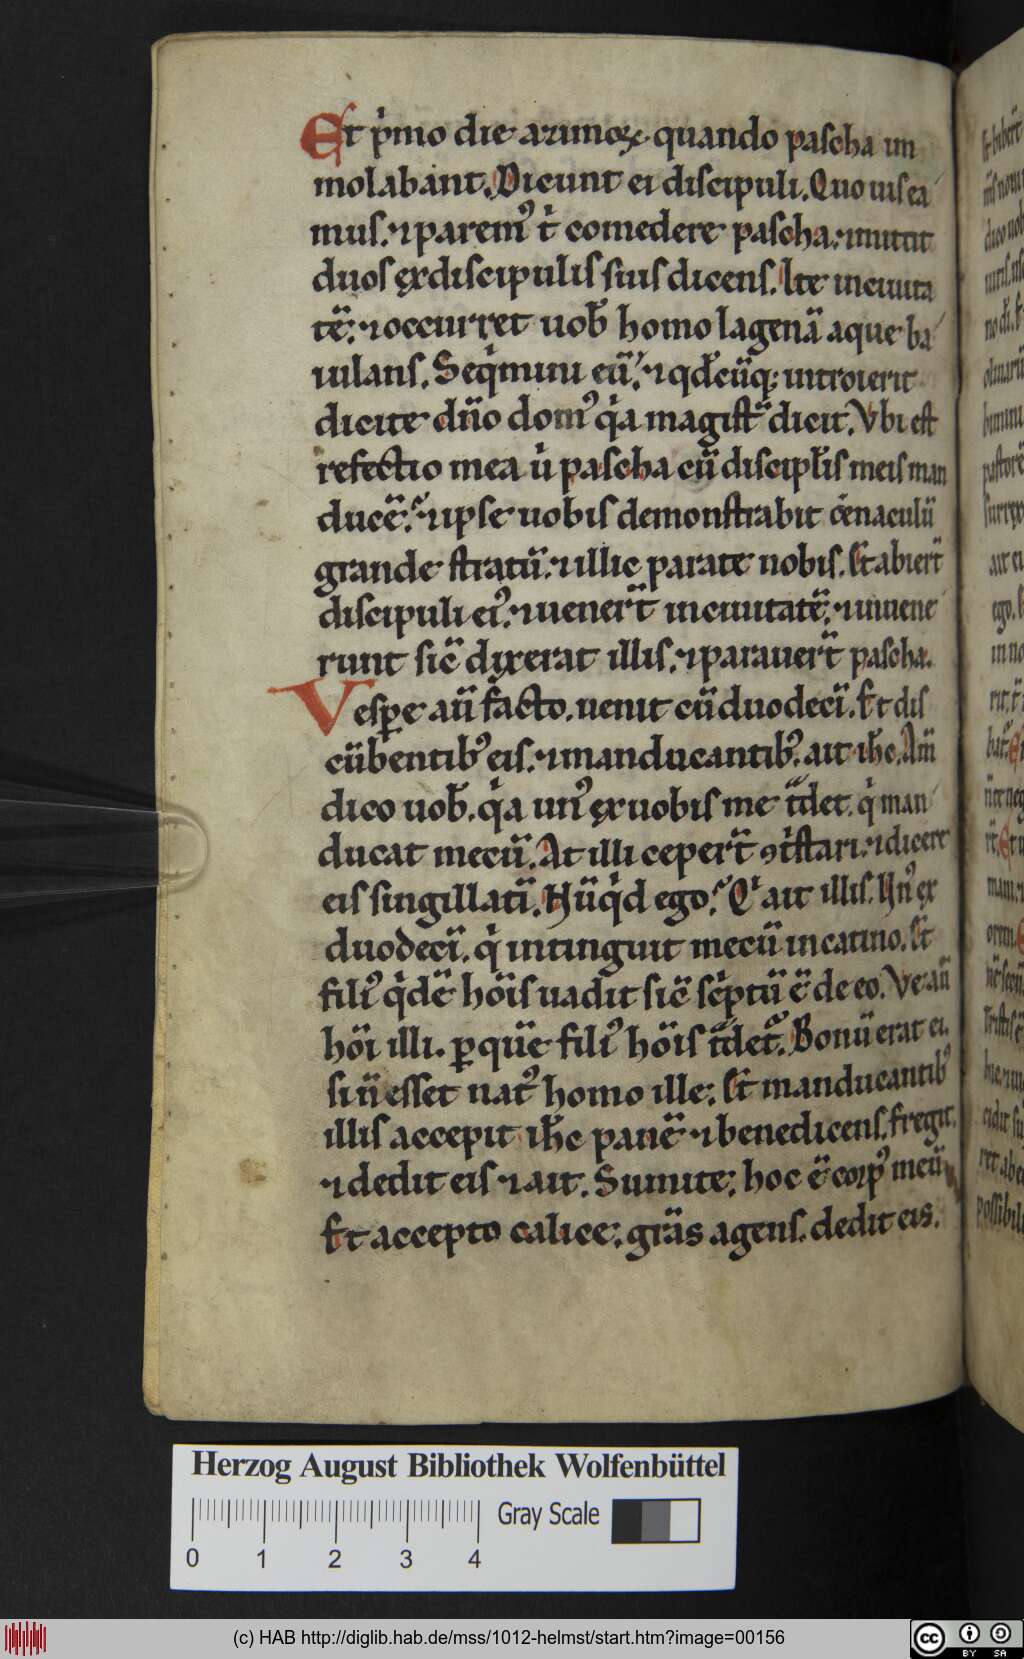 Et p͛mo die azimoꝝ quando pascha im
molabant. Dicunt ei discipuli. Quo uis ea
mus. ⁊ parem᷒ t̍ comedere pascha. ⁊ mittit
duos ęx discipulis suis dicens. Ite in ciuita
tē. ⁊ occurret uob̄ homo lagenā aque ba
iulans. Seq̍mini eū. ⁊ qd̄cūq; introierit
dicite dn̄o dom᷒ q̍a magist̄ dicit. Vbi est
refectio mea u̍ pascha cū discipl̄is meis man
ducē. ⁊ ipse uobis demonstrabit cēnaculū
grande stratū. ⁊ illic parate nobis. Et abier̄t
discipuli ei᷒. ⁊ uener̄t in ciuitatē. ⁊ inuene
runt sic̄ dixerat illis. ⁊ parauer̄t pascha.
Vesꝑe aū facto. uenit cū duodecī. Et dis
cūbentib᷒ eis. ⁊ manducantib᷒. ait ih̄c. Am̄
dico uob̄. q̍a un᷒ ęx uobis me t̄det. q̍ man
ducat mecū. At illi ceper̄t ꝯt̍stari. ⁊ dicere
eis singillatī. Nūq̍d ego. Q̍ ait illis. Un᷒ ęx
duodecī. q̍ intinguit mecū in catino. Et
fili᷒ q̍dē hōis uadit sic̄ sc̍ptū ē de eo. Ve aū
hōi illi. ꝑ quē fili᷒ hōis t̄det᷑. Bonū erat ei.
si n̄ esset nat᷒ homo ille. Et manducantib᷒
illis accepit ih̄c panē ⁊ benedicens. fregit.
⁊ dedit eis ⁊ ait. Sumite. hoc ē corp᷒ meū
Et accepto calice. grās agens. dedit eis.
Herzog August Bibliothek Wolfenbüttel
Gray Scale
0 1 2 3 4
(c) HAB http://diglib.hab.de/mss/1012-helmst/start.htm?image=00156
cc BY SA